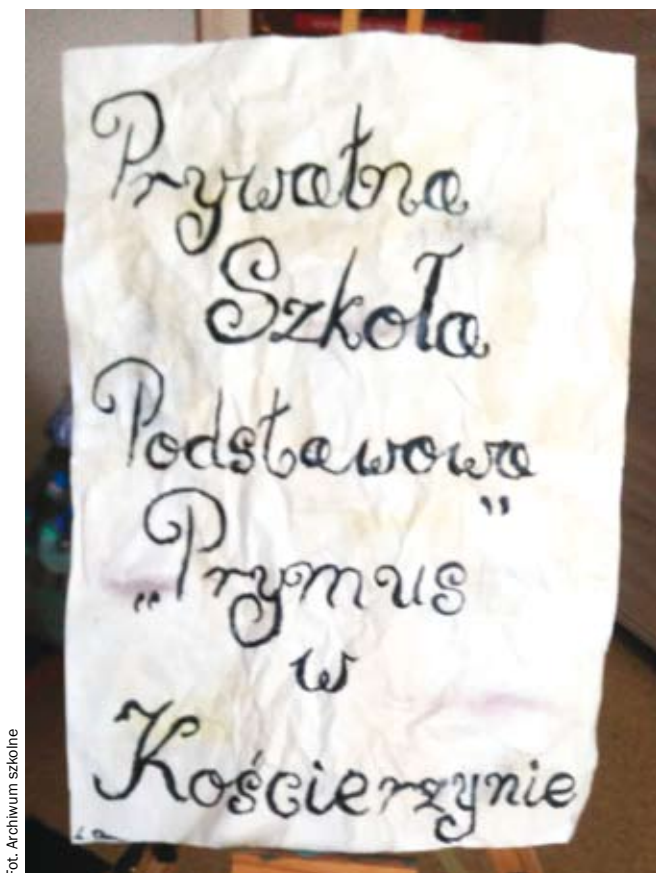 Prywatna
Szkoła
Podstawowa
„Prymus”
w
Kościerzynie
Fot. Archiwum szkolne